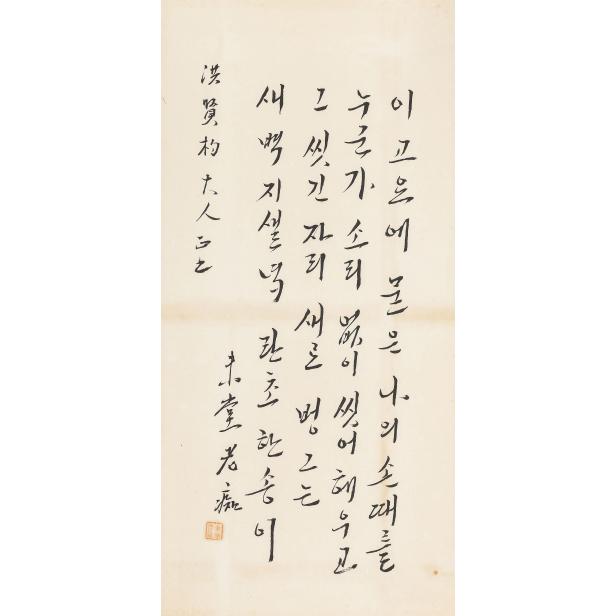 이 고요에 묻은 나의 손때를
누군가 소리 없이 씻어 헤우고
그 씻긴 자리 새로 벙그는
새벽 지샐녘 난초 한 송이
未堂老痴
洪賢杓大人正之